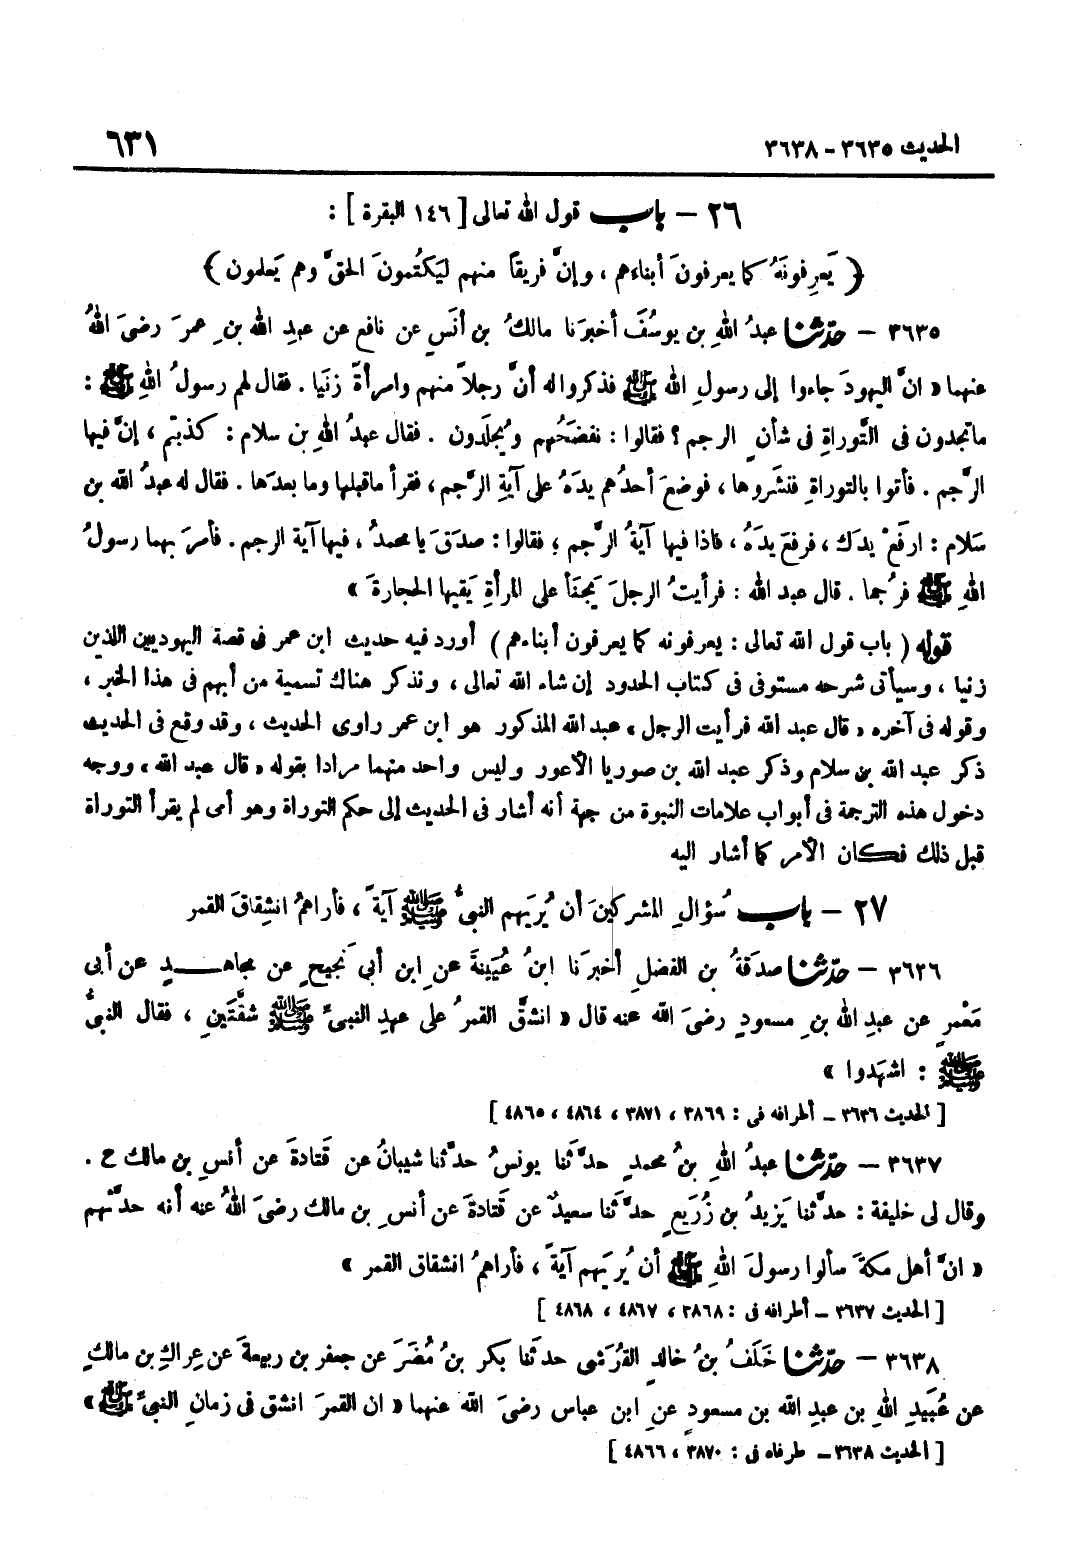 الحديث ٣٦٣٥ - ٣٦٣٨ ٦٣١
٢٦ - باب قول الله تعالى [ ١٤٦ البقرة ] :
﴿ يَعرِفونَهُ كما يعرفونَ أبناءهم ، وإنَّ فريقاً منهم ليَكتُمونَ الحقَّ وهم يَعلمون ﴾
٣٦٣٥ - حدّثنا عبدُ اللهِ بن يوسُفَ أخبرَنا مالكُ بن أنَسٍ عن نافع عن عبدِ الله بنِ عمرَ رضىَ اللهُ
عنهما « انَّ اليهودَ جاءوا إلى رسولِ الله ﷺ فذكروا له أنَّ رجلاً منهم وامرأةً زنَيا . فقال لهم رسولُ اللهِ ﷺ :
ماتجدون فى التَّوراةِ فى شأنِ الرجم ؟ فقالوا : نفضَحُهم ويُجلَدون . فقال عبدُ اللهِ بن سلام : كذبتم ، إنَّ فيها
الرَّجم . فأتوا بالتوراةِ فنشَروها ، فوضعَ أحدُهم يدَهُ على آيةِ الرَّجم ، فقرأ ماقبلها وما بعدَها . فقال له عبدُ الله بن
سَلام : ارفَعْ يدَك ، فرفعَ يدَهُ ، فاذا فيها آيةُ الرَّجم ؛ فقالوا : صدَقَ يا محمدُ ، فيها آية الرجم . فأمرَ بهما رسولُ
اللهِ ﷺ فرُجما . قال عبد الله : فرأيتُ الرجلَ يَجنَأ على المرأةِ يَقيها الحجارةَ »
قوله ( باب قول الله تعالى : يعرفونه كما يعرفون أبناءهم ) أورد فيه حديث ابن عمر فى قصة اليهوديين اللذين
زنيا ، وسيأتى شرحه مستوفى فى كتاب الحدود إن شاء الله تعالى ، ونذكر هناك تسمية من أبهم فى هذا الخبر ،
وقوله فى آخره « قال عبد الله فرأيت الرجل » عبد الله المذكور هو ابن عمر راوى الحديث ، وقد وقع فى الحديث
ذكر عبد الله بن سلام وذكر عبد الله بن صوريا الأعور وليس واحد منهما مرادا بقوله « قال عبد الله » ووجه
دخول هذه الترجمة فى أبواب علامات النبوة من جهة أنه أشار فى الحديث إلى حكم التوراة وهو أمى لم يقرأ التوراة
قبل ذلك فكان الأمر كما أشار اليه
٢٧ - باب سُؤالِ المشركينَ أن يُريَهم النبىُّ ﷺ آيةً ، فأراهمُ انشِقاقَ القمر
٣٦٣٦ - حدّثنا صدَقةُ بن الفضلِ أخبرَنا ابنُ عُيَينةَ عنِ ابن أبى نَجيحٍ عن مجاهدٍ عن أبى
مَعْمرٍ عن عبدِ الله بنِ مسعودٍ رضىَ الله عنه قال « انشقَّ القمرُ على عهدِ النبىِّ ﷺ شقَّتَينِ ، فقال النبىُّ
ﷺ : اشهَدوا »
[ الحديث ٣٦٣٦ - أطرافه فى : ٣٨٦٩ ، ٣٨٧١ ، ٤٨٦٤ ، ٤٨٦٥ ]
٣٦٣٧ - حدّثنا عبدُ اللهِ بنُ محمدٍ حدَّثنا يونسُ حدَّثنا شيبانُ عن قَتادةَ عن أنسِ بن مالك ح .
وقال لى خليفة : حدَّثنا يَزيدُ بن زُرَيعٍ حدَّثنا سعيدٌ عن قَتادةَ عن أنسِ بن مالك رضىَ اللهُ عنه أنه حدَّثهم
« انَّ أهل مكةَ سألوا رسولَ اللهِ ﷺ أن يُريَهم آيةً ، فأراهمُ انشقاق القمر »
[ الحديث ٣٦٣٧ - أطرافه فى : ٣٨٦٨ ، ٤٨٦٧ ، ٤٨٦٨ ]
٣٦٣٨ - حدّثنا خَلَفُ بنُ خالدٍ القُرَشى حدثنا بكر بنُ مُضَرَ عن جعفر بن ربيعةَ عن عِراكِ بن مالكٍ
عن عُبَيدِ اللهِ بن عبدِ الله بن مسعودٍ عنِ ابن عباس رضىَ الله عنهما « ان القمرَ انشق فى زمانِ النبىِّ ﷺ »
[ الحديث ٣٦٣٨ - طرفاه فى : ٣٨٧٠ ، ٤٨٦٦ ]